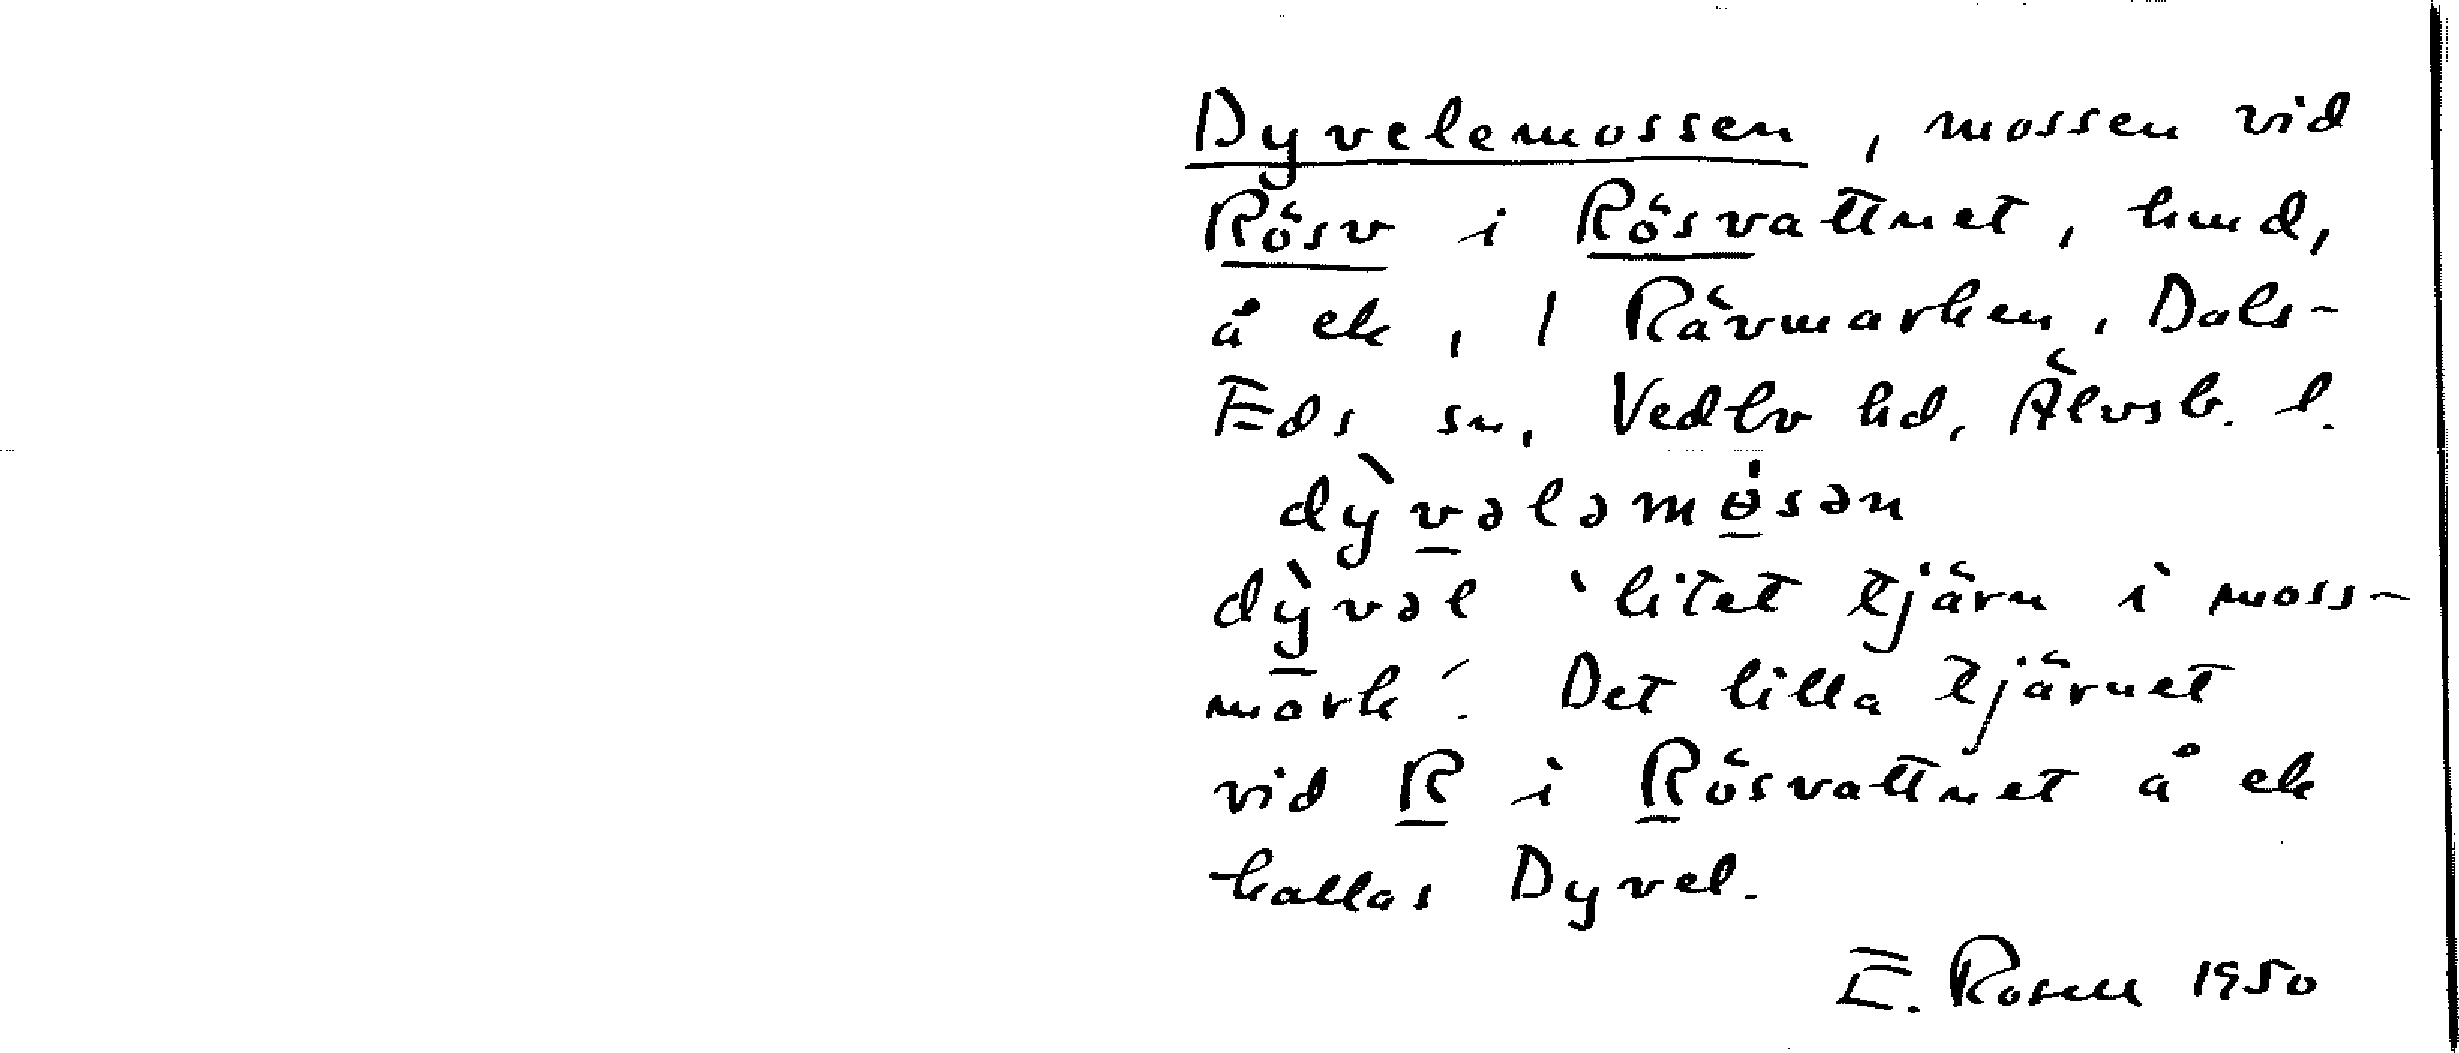 Dyvelemossen, mossen vid
Rösv i Rösvattnet, hmd,
å ek, 1 Rävmarken, Dals-
Eds sn, Vedbo hd, Älvsb. l.
dỳ̖vələmɵ̇sən
dỳvəl 'litet tjärn i moss-
mark'. Det lilla tjärnet
vid R i Rösvattnet å ek
kallas Dyvel.
E. Rosell 1950